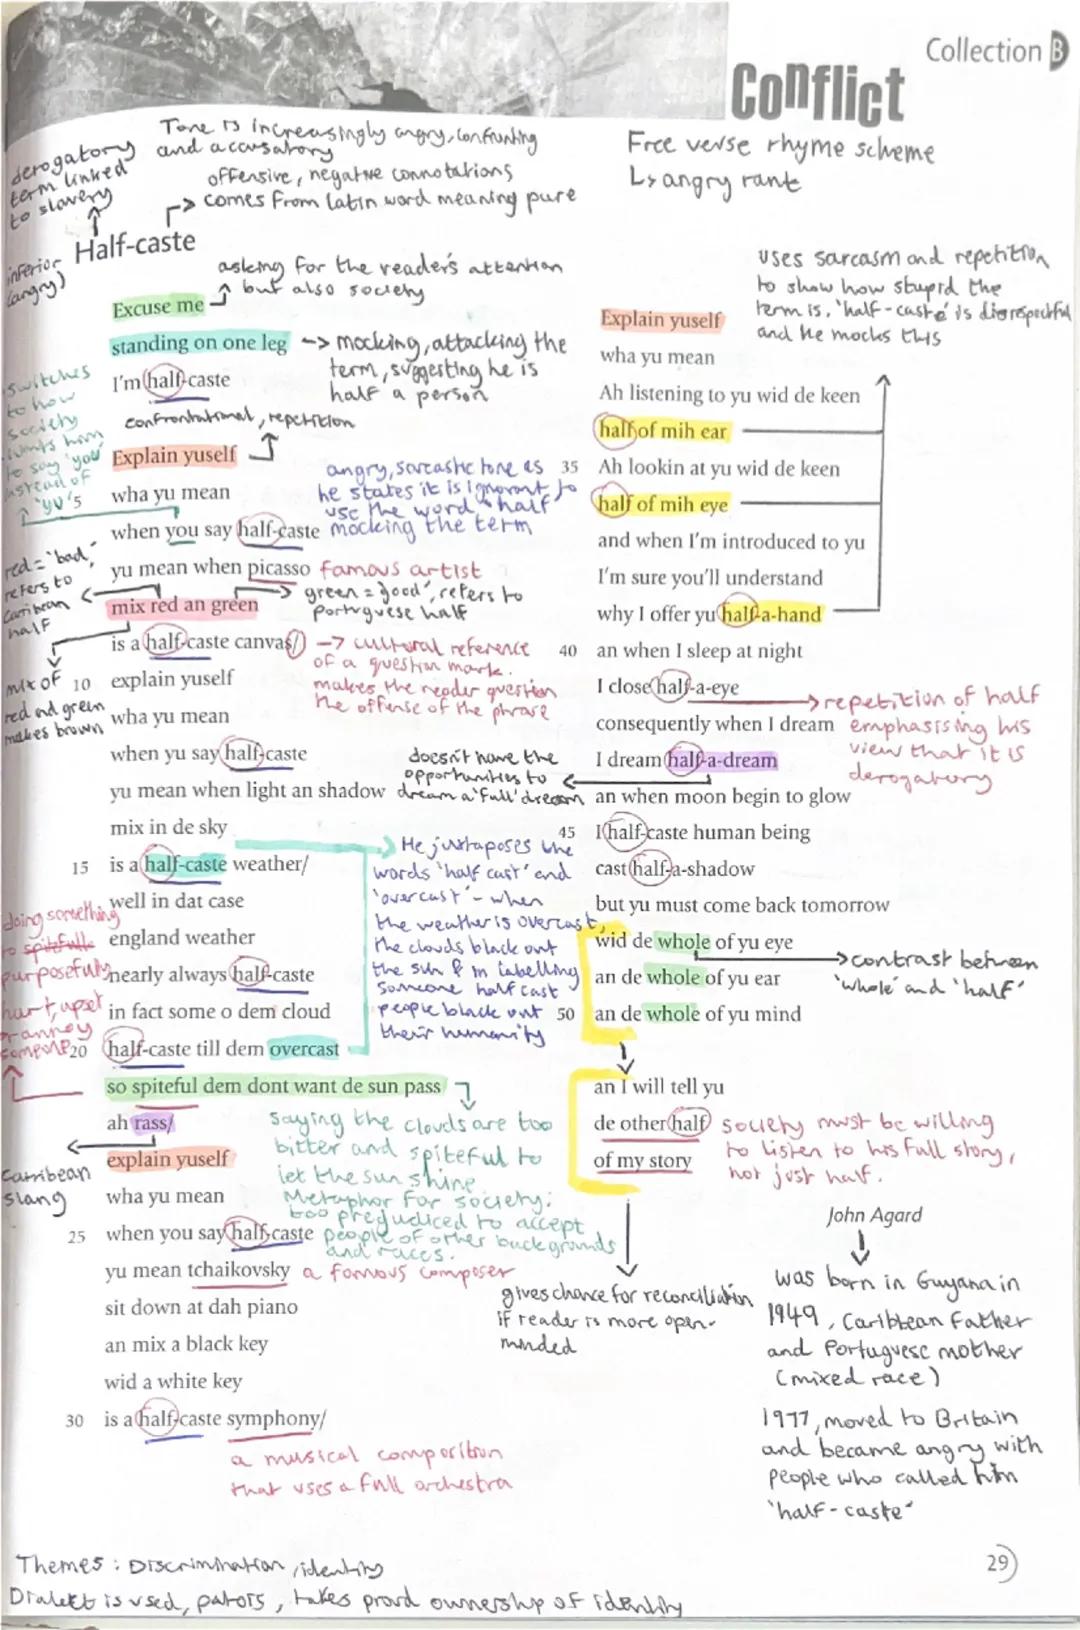 Collection B
Conflict
Tone is increasingly angry, confronting
and accusatory
derogatory
term linked
to slavery
offensive, negative connotations
comes from latin word meaning pure
Free verse rhyme scheme
↳ angry rant
Half-caste
inferior
(angry)
asking for the reader's attention
but also society
Excuse me
standing on one leg -> mocking, attacking the
term, suggesting he is
half a person
I'm half-caste
confrontational, repetition
switches
to how
society
wants him
to say 'you'
instead of
'yu'
Explain yuself
5 wha yu mean
when you say half-caste
angry, sarcastic tone as
he states it is ignorant to
use the word 'half'
mocking the term
yu mean when picasso famous artist
red = 'bad',
refers to
Carribean
half
green = 'good', refers to
Portuguese half
mix red an green
is a half-caste canvas/ -> cultural reference
of a question mark.
makes the reader question
the offense of the phrase
mix of
red and green
makes brown
10 explain yuself
wha yu mean
when yu say half-caste
yu mean when light an shadow
mix in de sky
15 is a half-caste weather/
well in dat case
england weather
nearly always half-caste
in fact some o dem cloud
20 half-caste till dem overcast
He juxtaposes the
words 'half cast' and
'overcast' - when
the weather is overcast,
the clouds black out
the sun & in labelling
someone half cast
people black out
their humanity
doing something
to spitefull
purposefully
hurt, upset
or annoy
someone
so spiteful dem dont want de sun pass
ah rass/
Carribean
slang
saying the clouds are too
bitter and spiteful to
let the sun shine
Metaphor for society:
too prejudiced to accept
people of other backgrounds
and races.
explain yuself
wha yu mean
25 when you say half-caste
yu mean tchaikovsky a famous composer
sit down at dah piano
an mix a black key
wid a white key
30 is a half-caste symphony/
a musical composition
that uses a full orchestra
uses sarcasm and repetition
to show how stupid the
term is, 'half-caste' is disrespectful
and he mocks this
Explain yuself
wha yu mean
Ah listening to yu wid de keen
half of mih ear
35 Ah lookin at yu wid de keen
half of mih eye
and when I'm introduced to yu
I'm sure you'll understand
why I offer yu half-a-hand
40 an when I sleep at night
I close half-a-eye
repetition of half
emphasising his
view that it is
derogatory
consequently when I dream
I dream half-a-dream
doesn't have the
opportunities to
dream a 'full' dream
an when moon begin to glow
45 I half-caste human being
cast half-a-shadow
but yu must come back tomorrow
wid de whole of yu eye
an de whole of yu ear
contrast between
'whole' and 'half'
50 an de whole of yu mind
an I will tell yu
de other half
of my story
society must be willing
to listen to his full story,
not just half.
gives chance for reconciliation
if reader is more open-
minded
John Agard
was born in Guyana in
1949, Caribbean Father
and Portuguese mother
(mixed race)
1977, moved to Britain
and became angry with
people who called him
'half-caste'
Themes: Discrimination, identity
Dialect is used, patois, takes proud ownership of identity
29